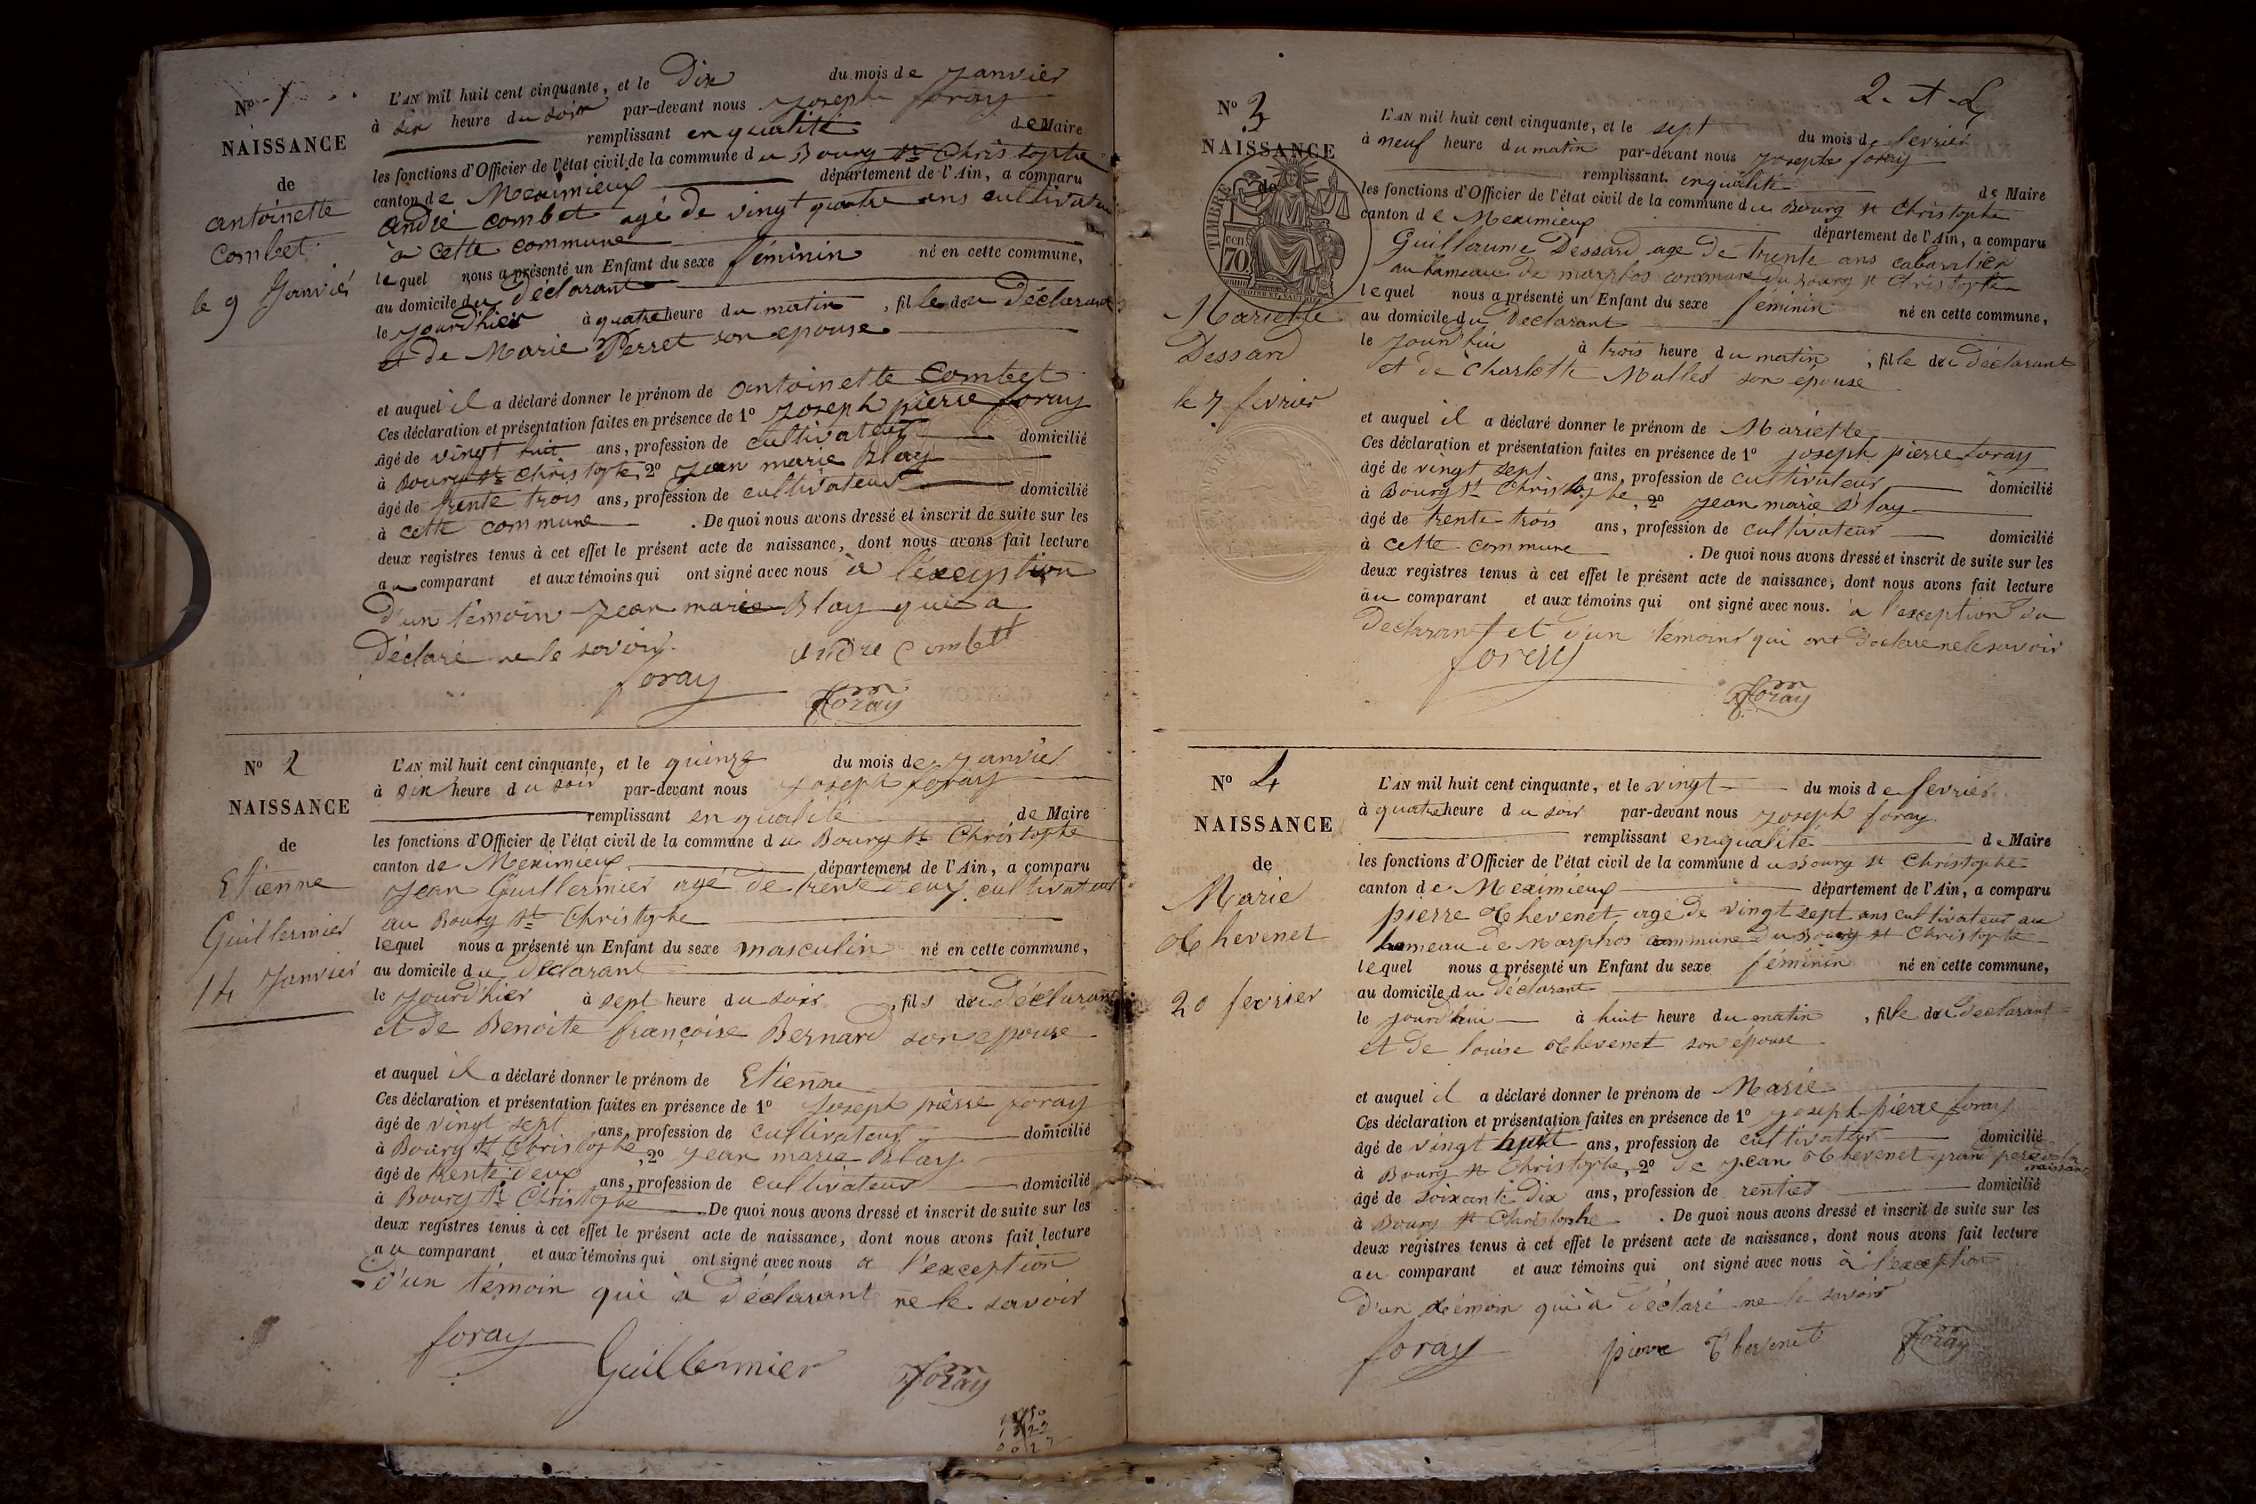 Nº 1
NAISSANCE
de
antoinette
Combet
le 9 Janvier
L'AN mil huit cent cinquante, et le Dix du mois de Janvier
à six heure du soir par-devant nous Joseph foray
remplissant en qualité de Maire
les fonctions d'Officier de l'état civil de la commune du Bourg St Christophe
canton de Meximieux département de l'Ain, a comparu
André Combet agé de vingt quatre ans cultivateur
à cette commune
lequel nous a présenté un Enfant du sexe féminin né en cette commune,
au domicile du Déclarant
le jourd'hier à quatre heure du matin, fille du Déclarant
et de Marie Perret son epouse
et auquel il a déclaré donner le prénom de antoinette Combet
Ces déclaration et présentation faites en présence de 1º Joseph pierre foray
âgé de vingt huit ans, profession de cultivateur domicilié
à Bourg St Christophe, 2º Jean marie Blay
âgé de trente trois ans, profession de cultivateur domicilié
à cette commune . De quoi nous avons dressé et inscrit de suite sur les
deux registres tenus à cet effet le présent acte de naissance, dont nous avons fait lecture
au comparant et aux témoins qui ont signé avec nous à l'exception
d'un témoin Jean marie Blay qui a
déclaré ne le savoir.
foray André Combet
foray
Nº 2
NAISSANCE
de
Etienne
Guillermier
14 Janvier
L'AN mil huit cent cinquante, et le quinze du mois de Janvier
à six heure du soir par-devant nous Joseph foray
remplissant en qualité de Maire
les fonctions d'Officier de l'état civil de la commune du Bourg St Christophe
canton de Meximieux département de l'Ain, a comparu
Jean Guillermier agé de trente deux cultivateur
au Bourg St Christophe
lequel nous a présenté un Enfant du sexe masculin né en cette commune,
au domicile du Déclarant
le jourd'hier à sept heure du soir, fils du Déclarant
et de Benoite françoise Bernard son epouse
et auquel il a déclaré donner le prénom de Etienne
Ces déclaration et présentation faites en présence de 1º Joseph pierre foray
âgé de vingt sept ans, profession de cultivateur domicilié
à Bourg St Christophe, 2º Jean marie Blay
âgé de trente deux ans, profession de cultivateur domicilié
à Bourg St Christophe . De quoi nous avons dressé et inscrit de suite sur les
deux registres tenus à cet effet le présent acte de naissance, dont nous avons fait lecture
au comparant et aux témoins qui ont signé avec nous à l'exception
d'un témoin qui à déclarant ne le savoir
foray
Guillermier foray
2. A. L
Nº 3
NAISSANCE
de
TIMBRE
70
Mariette
Dessard
le 7 fevrier
L'AN mil huit cent cinquante, et le sept du mois de fevrier
à neuf heure du matin par-devant nous Joseph foray
remplissant en qualité de Maire
les fonctions d'Officier de l'état civil de la commune du Bourg St Christophe
canton de Meximieux département de l'Ain, a comparu
Guillaume Dessard age de trente ans cabartier
au hameau de marphos commune du Bourg St Christophe
lequel nous a présenté un Enfant du sexe féminin né en cette commune,
au domicile du Déclarant
le jourd'hui à trois heure du matin, fille du déclarant
et de Charlotte Mallet son épouse
et auquel il a déclaré donner le prénom de Mariette
Ces déclaration et présentation faites en présence de 1º Joseph pierre foray
âgé de vingt sept ans, profession de cultivateur domicilié
à Bourg St Christophe, 2º Jean marie Blay
âgé de trente trois ans, profession de cultivateur domicilié
à cette commune . De quoi nous avons dressé et inscrit de suite sur les
deux registres tenus à cet effet le présent acte de naissance, dont nous avons fait lecture
au comparant et aux témoins qui ont signé avec nous. à l'exception du
Declarant et d'un témoins qui ont déclaré ne le savoir
foray
foray
Nº 4
NAISSANCE
de
Marie
Thevenet
20 fevrier
L'AN mil huit cent cinquante, et le vingt du mois de fevrier
à quatre heure du soir par-devant nous Joseph foray
remplissant en qualité de Maire
les fonctions d'Officier de l'état civil de la commune du Bourg St Christophe
canton de Meximieux département de l'Ain, a comparu
pierre Thevenet agé de vingt sept ans cultivateur au
hameau de Marphos commune du Bourg St Christophe
lequel nous a présenté un Enfant du sexe féminin né en cette commune,
au domicile du déclarant
le jourd'hui à huit heure du matin, fille du Déclarant
et de louise Thevenet son épouse
et auquel il a déclaré donner le prénom de Marie
Ces déclaration et présentation faites en présence de 1º Joseph pierre foray
âgé de vingt huit ans, profession de cultivateur domicilié
à Bourg St Christophe, 2º de Jean Thevenet grand pere
âgé de soixante dix ans, profession de rentier domicilié
à Bourg St Christophe . De quoi nous avons dressé et inscrit de suite sur les
deux registres tenus à cet effet le présent acte de naissance, dont nous avons fait lecture
au comparant et aux témoins qui ont signé avec nous à l'exception
d'un témoin qui à déclaré ne le savoir
foray pierre Thevenet foray